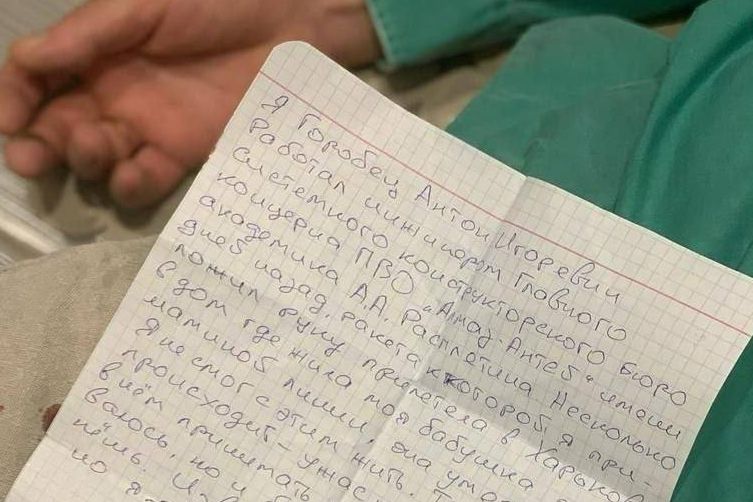 Я Горобец Антон Игоревич
Работал инжинером Главного
системного конструкторского бюро
концерна ПВО "Алмаз-Антей" имени
академика А.А. Расплетина Несколько
дней назад, ракета к которой я при-
ложил руку прилетела в Харьков
в дом где жила моя бабушка
маминой линии, она
Я не смог с этим жить.
происходит - ужас
в нём принимать
валось, но и